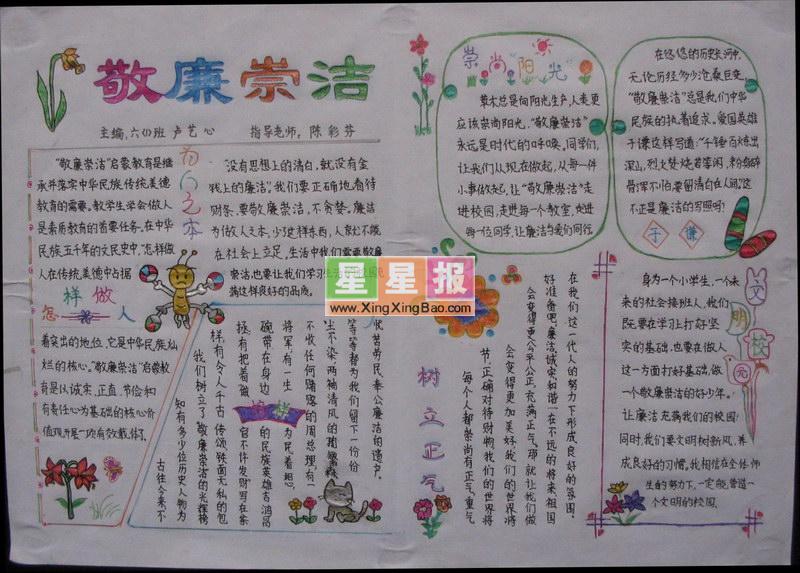 敬廉崇洁
主编：六(1)班 卢艺心 指导老师：陈彩芬
“敬廉崇洁”启蒙教育是继
承并落实中华民族传统美德
教育的需要。教学生学会做人
是素质教育的首要任务。在中华
民族五千年的文民史中，怎样做
人在传统美德中占据
怎样做人
着突出的地位，它是中华民族灿
烂的核心。“敬廉崇洁”启蒙教
育是以诚实、正直、节俭和
有责任心为基础的核心价
值观开展一项有效载体。
为人之本
没有思想上的清白，就没有金
钱上的廉洁。我们要正确地看待
财条，要敬廉崇洁，不贪婪。廉洁
为做人之本，少了这样东西，人家忆不能
在社会上立足，生活中我们需要敬廉
崇洁，也要让我们学习生
满这样良好的品质。
星星报
www.XingXingBao.com
榜样
古往今来不
知有多少位历史人物为
我们树立了敬廉崇洁的光辉榜
样，有令人千古传颂铁面无私的包
拯，有把着做官不许发财写在茶
碗带在身边的民族英雄吉鸿昌
将军，有一生为民着想、
不收任何赌赂的周总理，有一
尘不染、两袖清风的
等等，都为我们留下一份份
忧苦劳民、奉公廉洁的遗产。
崇尚“阳光”
草木总是向阳光生产，人类更
应该崇尚阳光，“敬廉崇洁”
永远是时代的呼唤。同学们，
让我们从现在做起，从每一件
小事做起，让“敬廉崇洁”走
进校园，走进每一个教室，走进
每一位同学，让廉洁与爱们同行。
在悠悠的历史长河中，
无论历经多少沧桑巨变，
“敬廉崇洁”总是我们中华
民族的执着追求。爱国英雄
于谦这样写道：“千锤百炼出
深山，烈火焚烧若等闲，粉身碎
骨浑不怕，要留清白在人间。”这
不正是廉洁的写照吗？
于谦
树立正气
每个人都崇尚有正气，重气
节，正确对待财物，我们的世界将
会变得更加美好，我们的世界将
会变得更公平公正，充满正气。那就让我们做
好准备吧，廉洁诚实和谐一在不远的将来祖国
在我们这一代人的努力下形成良好的氛围。
文明校园
身为一个小学生，一个未
来的社会接班人，我们
既要在学习上打好坚
实的基础，也要在做人
这一方面打好基础，做
一个敬廉崇洁的好少年。
让廉洁充满我们的校园！
同时，我们要文明树新风，养
成良好的习惯。我相信在全体师
生的努力下，一定能营造一
个文明的校园。